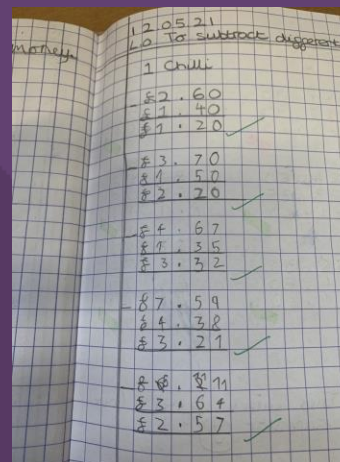 money.
120521
LO To subtract different
1 Chilli
- £2.60
£1.40
£1.20
- £3.70
£1.50
£2.20
- £4.67
£1.35
£3.32
- £7.59
£4.38
£3.21
£3.64
£2.57